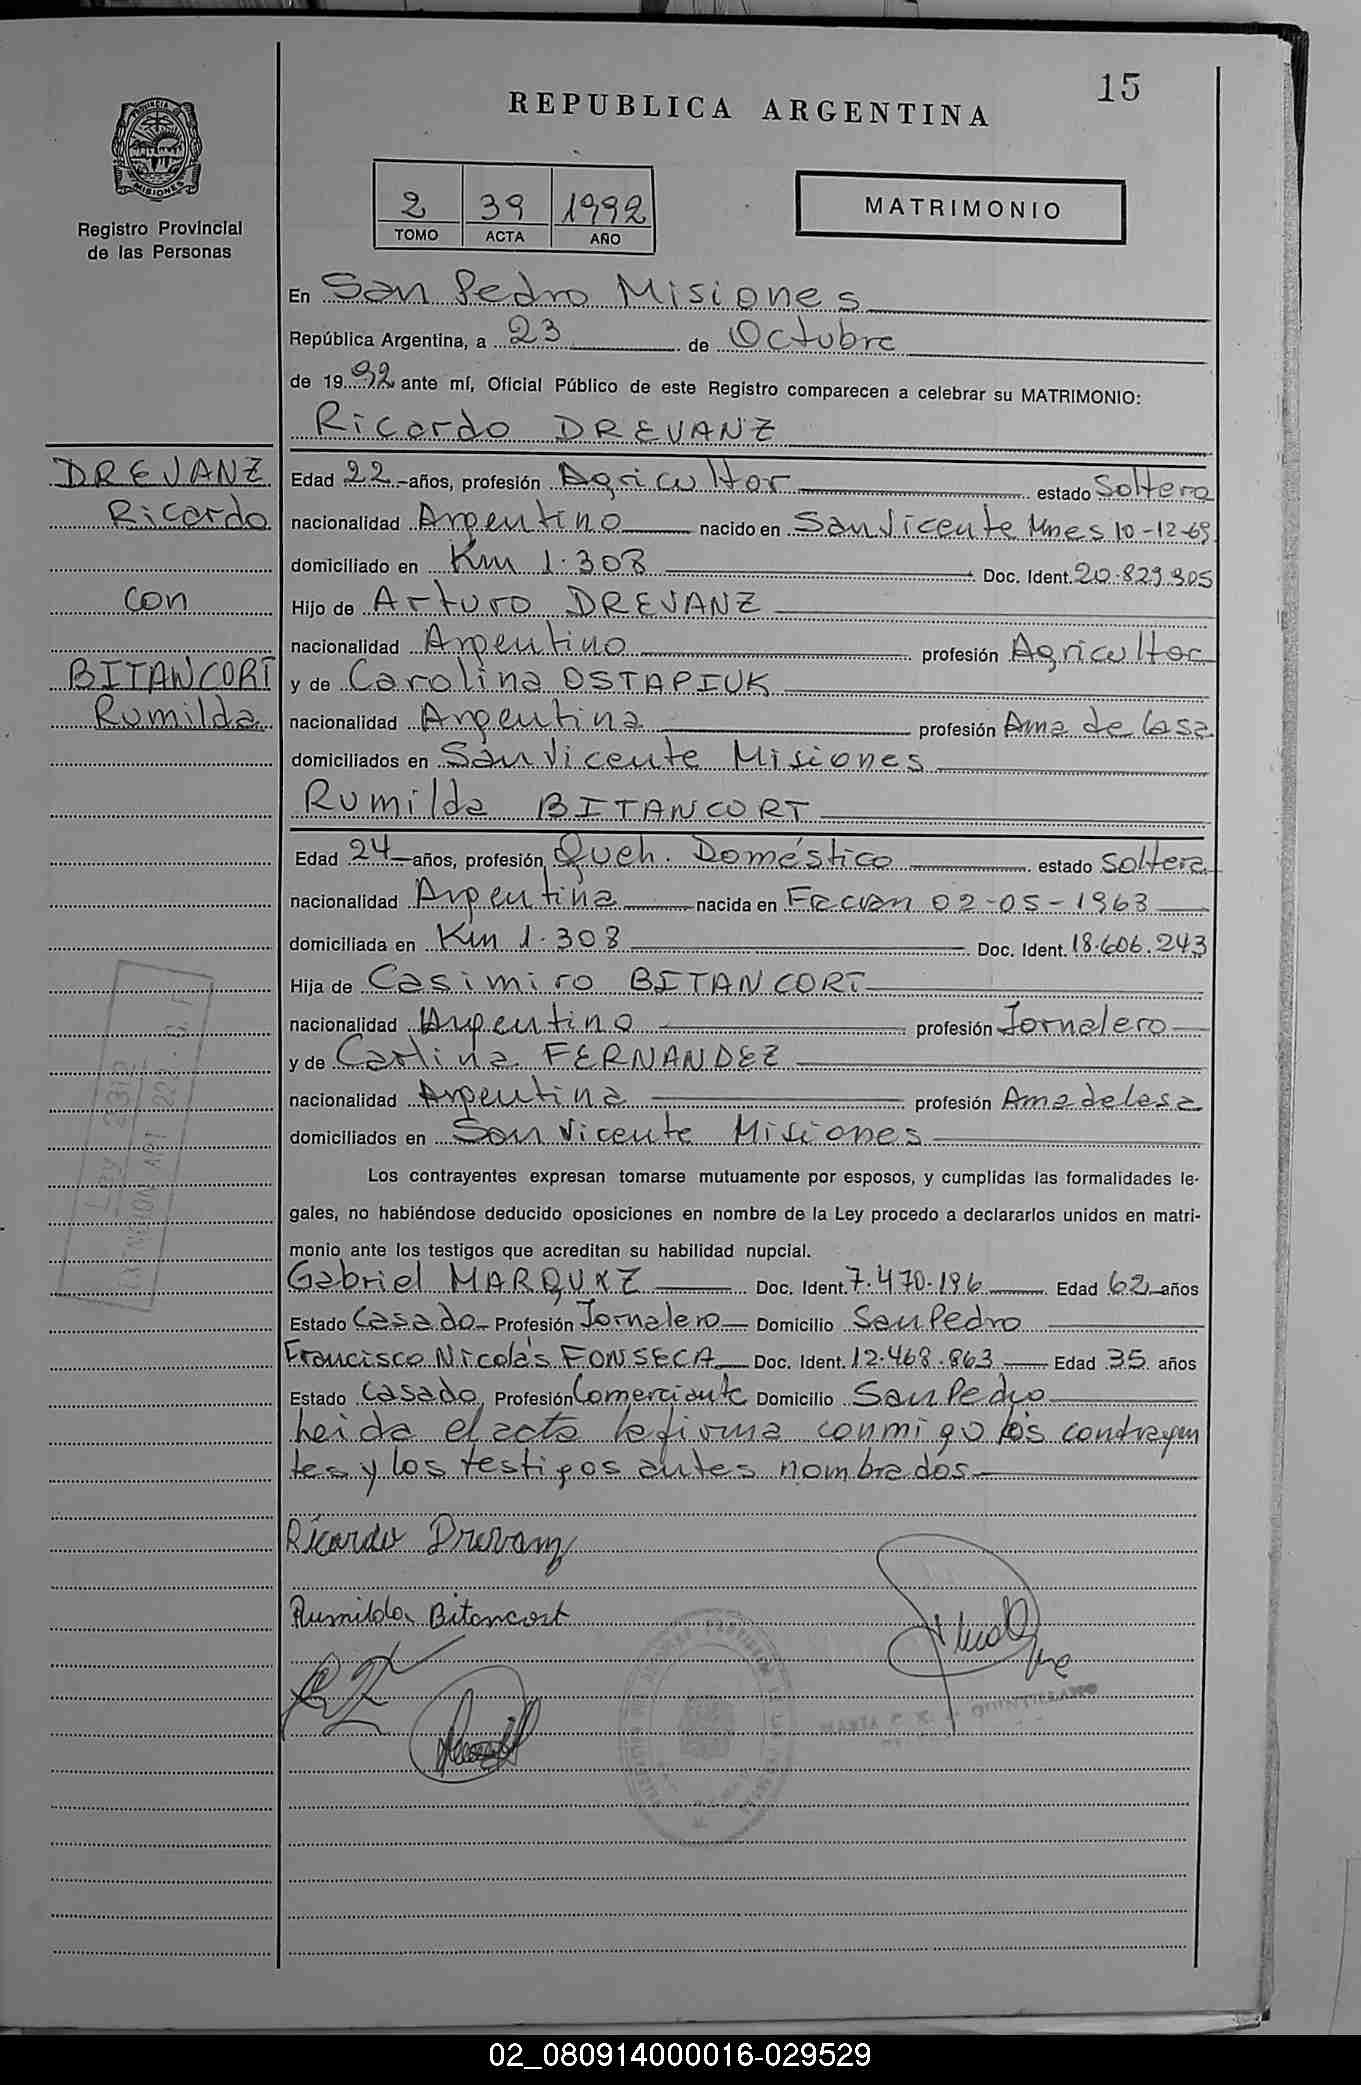 15
REPUBLICA ARGENTINA
PROVINCIA DE
MISIONES
Registro Provincial
de las Personas
2 39 1992
TOMO ACTA AÑO
MATRIMONIO
En San Pedro Misiones
República Argentina, a 23 de Octubre
de 19 92 ante mí, Oficial Público de este Registro comparecen a celebrar su MATRIMONIO:
Ricardo DREVANZ
DREVANZ
Ricardo
con
BITANCORT
Rumilda
Edad 22 años, profesión Agricultor estado Soltero
nacionalidad Argentino nacido en San Vicente Mnes 10-12-69
domiciliado en Km 1.308 Doc. Ident. 20.829.305
Hijo de Arturo DREVANZ
nacionalidad Argentino profesión Agricultor
y de Carolina OSTAPIUK
nacionalidad Argentina profesión Ama de Casa
domiciliados en San Vicente Misiones
Rumilda BITANCORT
Edad 24 años, profesión Queh. Doméstico estado Soltera
nacionalidad Argentina nacida en Fracran 02-05-1963
domiciliada en Km 1.308 Doc. Ident. 18.606.243
Hija de Casimiro BITANCORT
nacionalidad Argentino profesión Jornalero
y de Carlina FERNANDEZ
nacionalidad Argentina profesión Ama de Casa
domiciliados en San Vicente Misiones
Los contrayentes expresan tomarse mutuamente por esposos, y cumplidas las formalidades le-
gales, no habiéndose deducido oposiciones en nombre de la Ley procedo a declararlos unidos en matri-
monio ante los testigos que acreditan su habilidad nupcial.
Gabriel MARQUEZ Doc. Ident. 7.470.196 Edad 62 años
Estado Casado Profesión Jornalero Domicilio San Pedro
Francisco Nicolás FONSECA Doc. Ident. 12.468.863 Edad 35 años
Estado Casado Profesión Comerciante Domicilio San Pedro
Leida el acta la firma conmigo los contrayen
tes y los testigos antes nombrados
Ricardo Drevanz
Rumilda Bitancort
Ley 2312
02_080914000016-029529